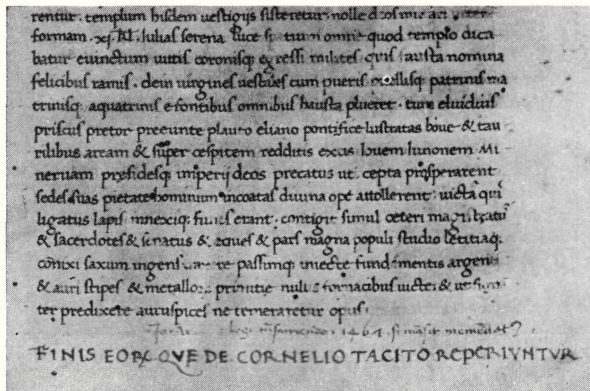 rentur. templum hisdem uestigiis sisteretur. nolle deos mutari ueterem
formam. xi. kl. Iulias serena luce spatium omne quod templo dica
batur euinctum uittis coronisq; ingressi milites quis fausta nomina
felicibus ramis. dein uirgines uestales cum pueris puellisq; patrimis ma
trimisq; aqua trimis e fontibus omnibus hausta plueret. tunc eluidius
priscus pretor preeunte plauto eliano pontifice lustratas boue & tau
rilibus aream & super cespitem redditis extis Iouem Iunonem Mi
neruam presidesq; imperij deos precatus uti cepta prosperarent
sedes suas pietate hominum incoatas diuina ope attollerent. uicta quis
ligatus lapis innexiq; funes erant. contigit simul ceteri magistratus
& sacerdotes & senatus & eques & pars magna populi studio letitiaq;
conixi saxum ingens passimq; iniecte fundamentis argenti
& auri stipes & metallorum primitie nullis fornacibus uicte: & ut
ter predixere aruspices ne temeraretur opus.
1464
FINIS EORV QVE DE CORNELIO TACITO REPERIVNTVR